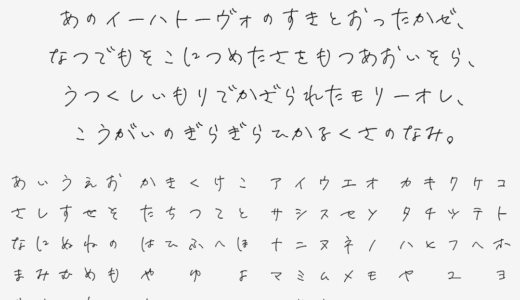 あのイーハトーヴォのすきとおったかぜ、
なつでもそこにつめたさをもつあおいそら、
うつくしいもりでかざられたモリーオし、
こうがいのぎらぎらひかるくさのなみ。
あいうえお かきくけこ アイウエオ カキクケコ
さしすせそ たちつてと サシスセソ タチツテト
なにぬねの はひふへほ ナニヌネノ ハヒフヘホ
まみむめも や ゆ よ マミムメモ ヤ ユ ヨ